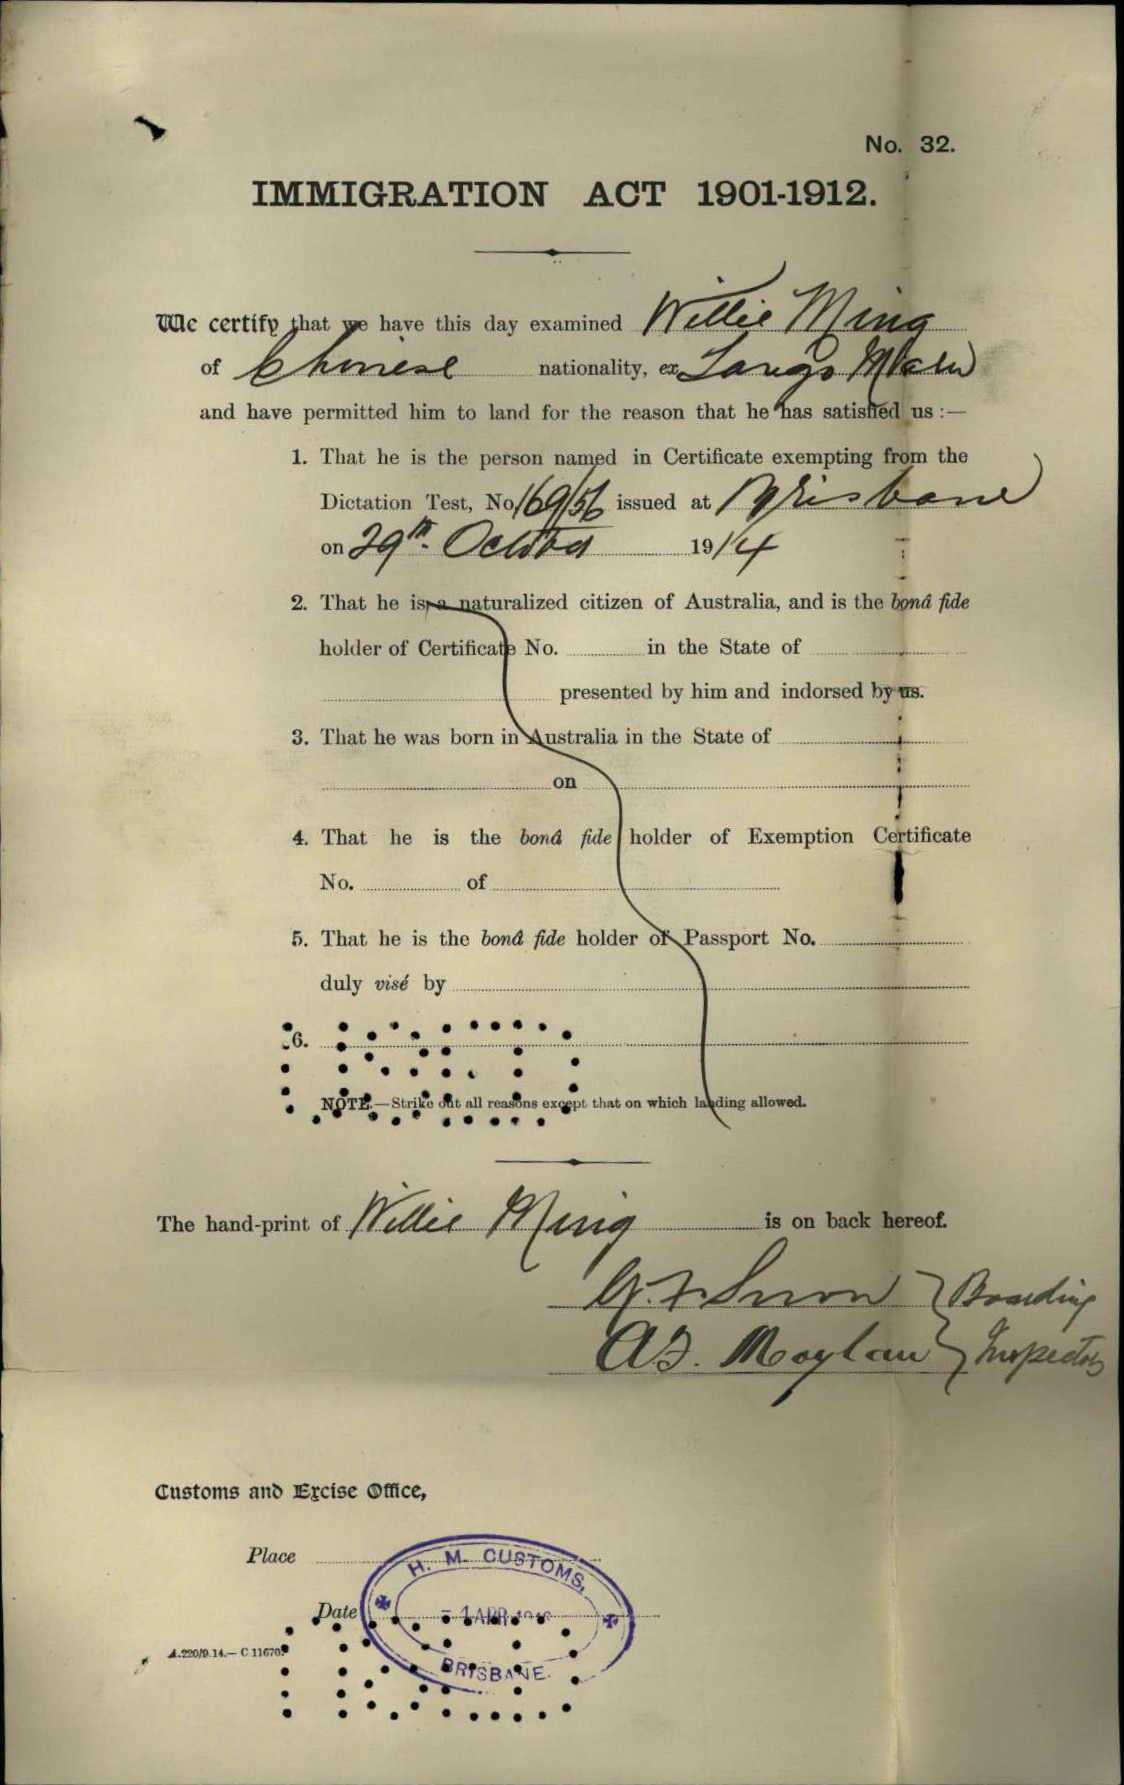 No. 32.
IMMIGRATION ACT 1901-1912.
We certify that we have this day examined Willie Ming
of Chinese nationality, ex
and have permitted him to land for the reason that he has satisfied us :—
1. That he is the person named in Certificate exempting from the
Dictation Test, No. 169/56 issued at Brisbane
on 29th. October 1914
2. That he is a naturalized citizen of Australia, and is the bonâ fide
holder of Certificate No. in the State of
presented by him and indorsed by us.
3. That he was born in Australia in the State of
on
4. That he is the bonâ fide holder of Exemption Certificate
No. of
5. That he is the bonâ fide holder of Passport No.
duly visé by
6.
NOTE.—Strike out all reasons except that on which landing allowed.
The hand-print of Willie Ming is on back hereof.
Boarding
Moylan Inspectors
Customs and Excise Office,
Place
H. M. CUSTOMS,
Date APR
A.220/9.14.—C 11670.
BRISBANE.